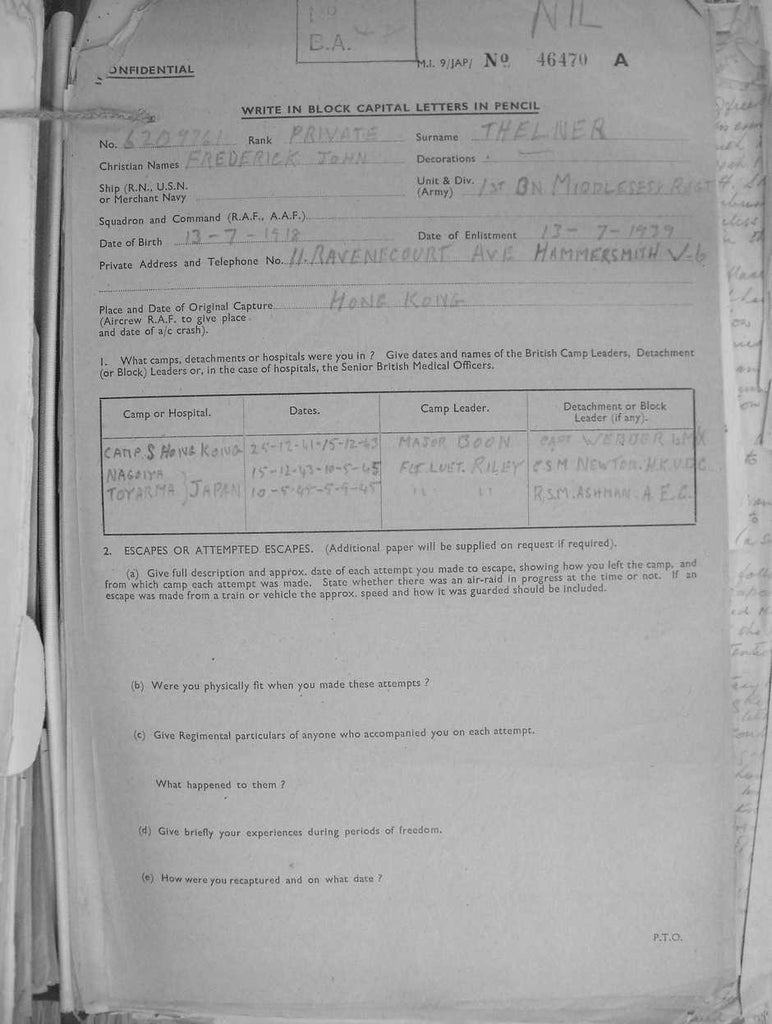 NIL
B.A.
ONFIDENTIAL
M.I. 9/JAP/ No 46470 A
WRITE IN BLOCK CAPITAL LETTERS IN PENCIL
No. 6209761 Rank PRIVATE Surname THELNER
Christian Names FREDERICK JOHN Decorations —
Ship (R.N., U.S.N. or Merchant Navy
Unit & Div. (Army) 1ST BN MIDDLESEX REGT
Squadron and Command (R.A.F., A.A.F.)
Date of Birth 13-7-1918 Date of Enlistment 13-7-1939
Private Address and Telephone No. 11. RAVENSCOURT AVE HAMMERSMITH W.6
Place and Date of Original Capture HONG KONG
(Aircrew R.A.F. to give place
and date of a/c crash).
1. What camps, detachments or hospitals were you in ? Give dates and names of the British Camp Leaders, Detachment
(or Block) Leaders or, in the case of hospitals, the Senior British Medical Officers.
Camp or Hospital. Dates. Camp Leader. Detachment or Block
Leader (if any).
CAMP. S HONG KONG 25-12-41-15-12-43 MAJOR BOON CAPT
NAGOIYA 15-12-43-10-5-45 FLT LUET. RILEY C.S.M NEWTON. H.K.V.D.C
TOYARMA JAPAN 10-5-45-5-9-45 " " R.S.M. ASHMAN. A.E.C.
2. ESCAPES OR ATTEMPTED ESCAPES. (Additional paper will be supplied on request if required).
(a) Give full description and approx. date of each attempt you made to escape, showing how you left the camp, and
from which camp each attempt was made. State whether there was an air-raid in progress at the time or not. If an
escape was made from a train or vehicle the approx. speed and how it was guarded should be included.
(b) Were you physically fit when you made these attempts ?
(c) Give Regimental particulars of anyone who accompanied you on each attempt.
What happened to them ?
(d) Give briefly your experiences during periods of freedom.
(e) How were you recaptured and on what date ?
P.T.O.